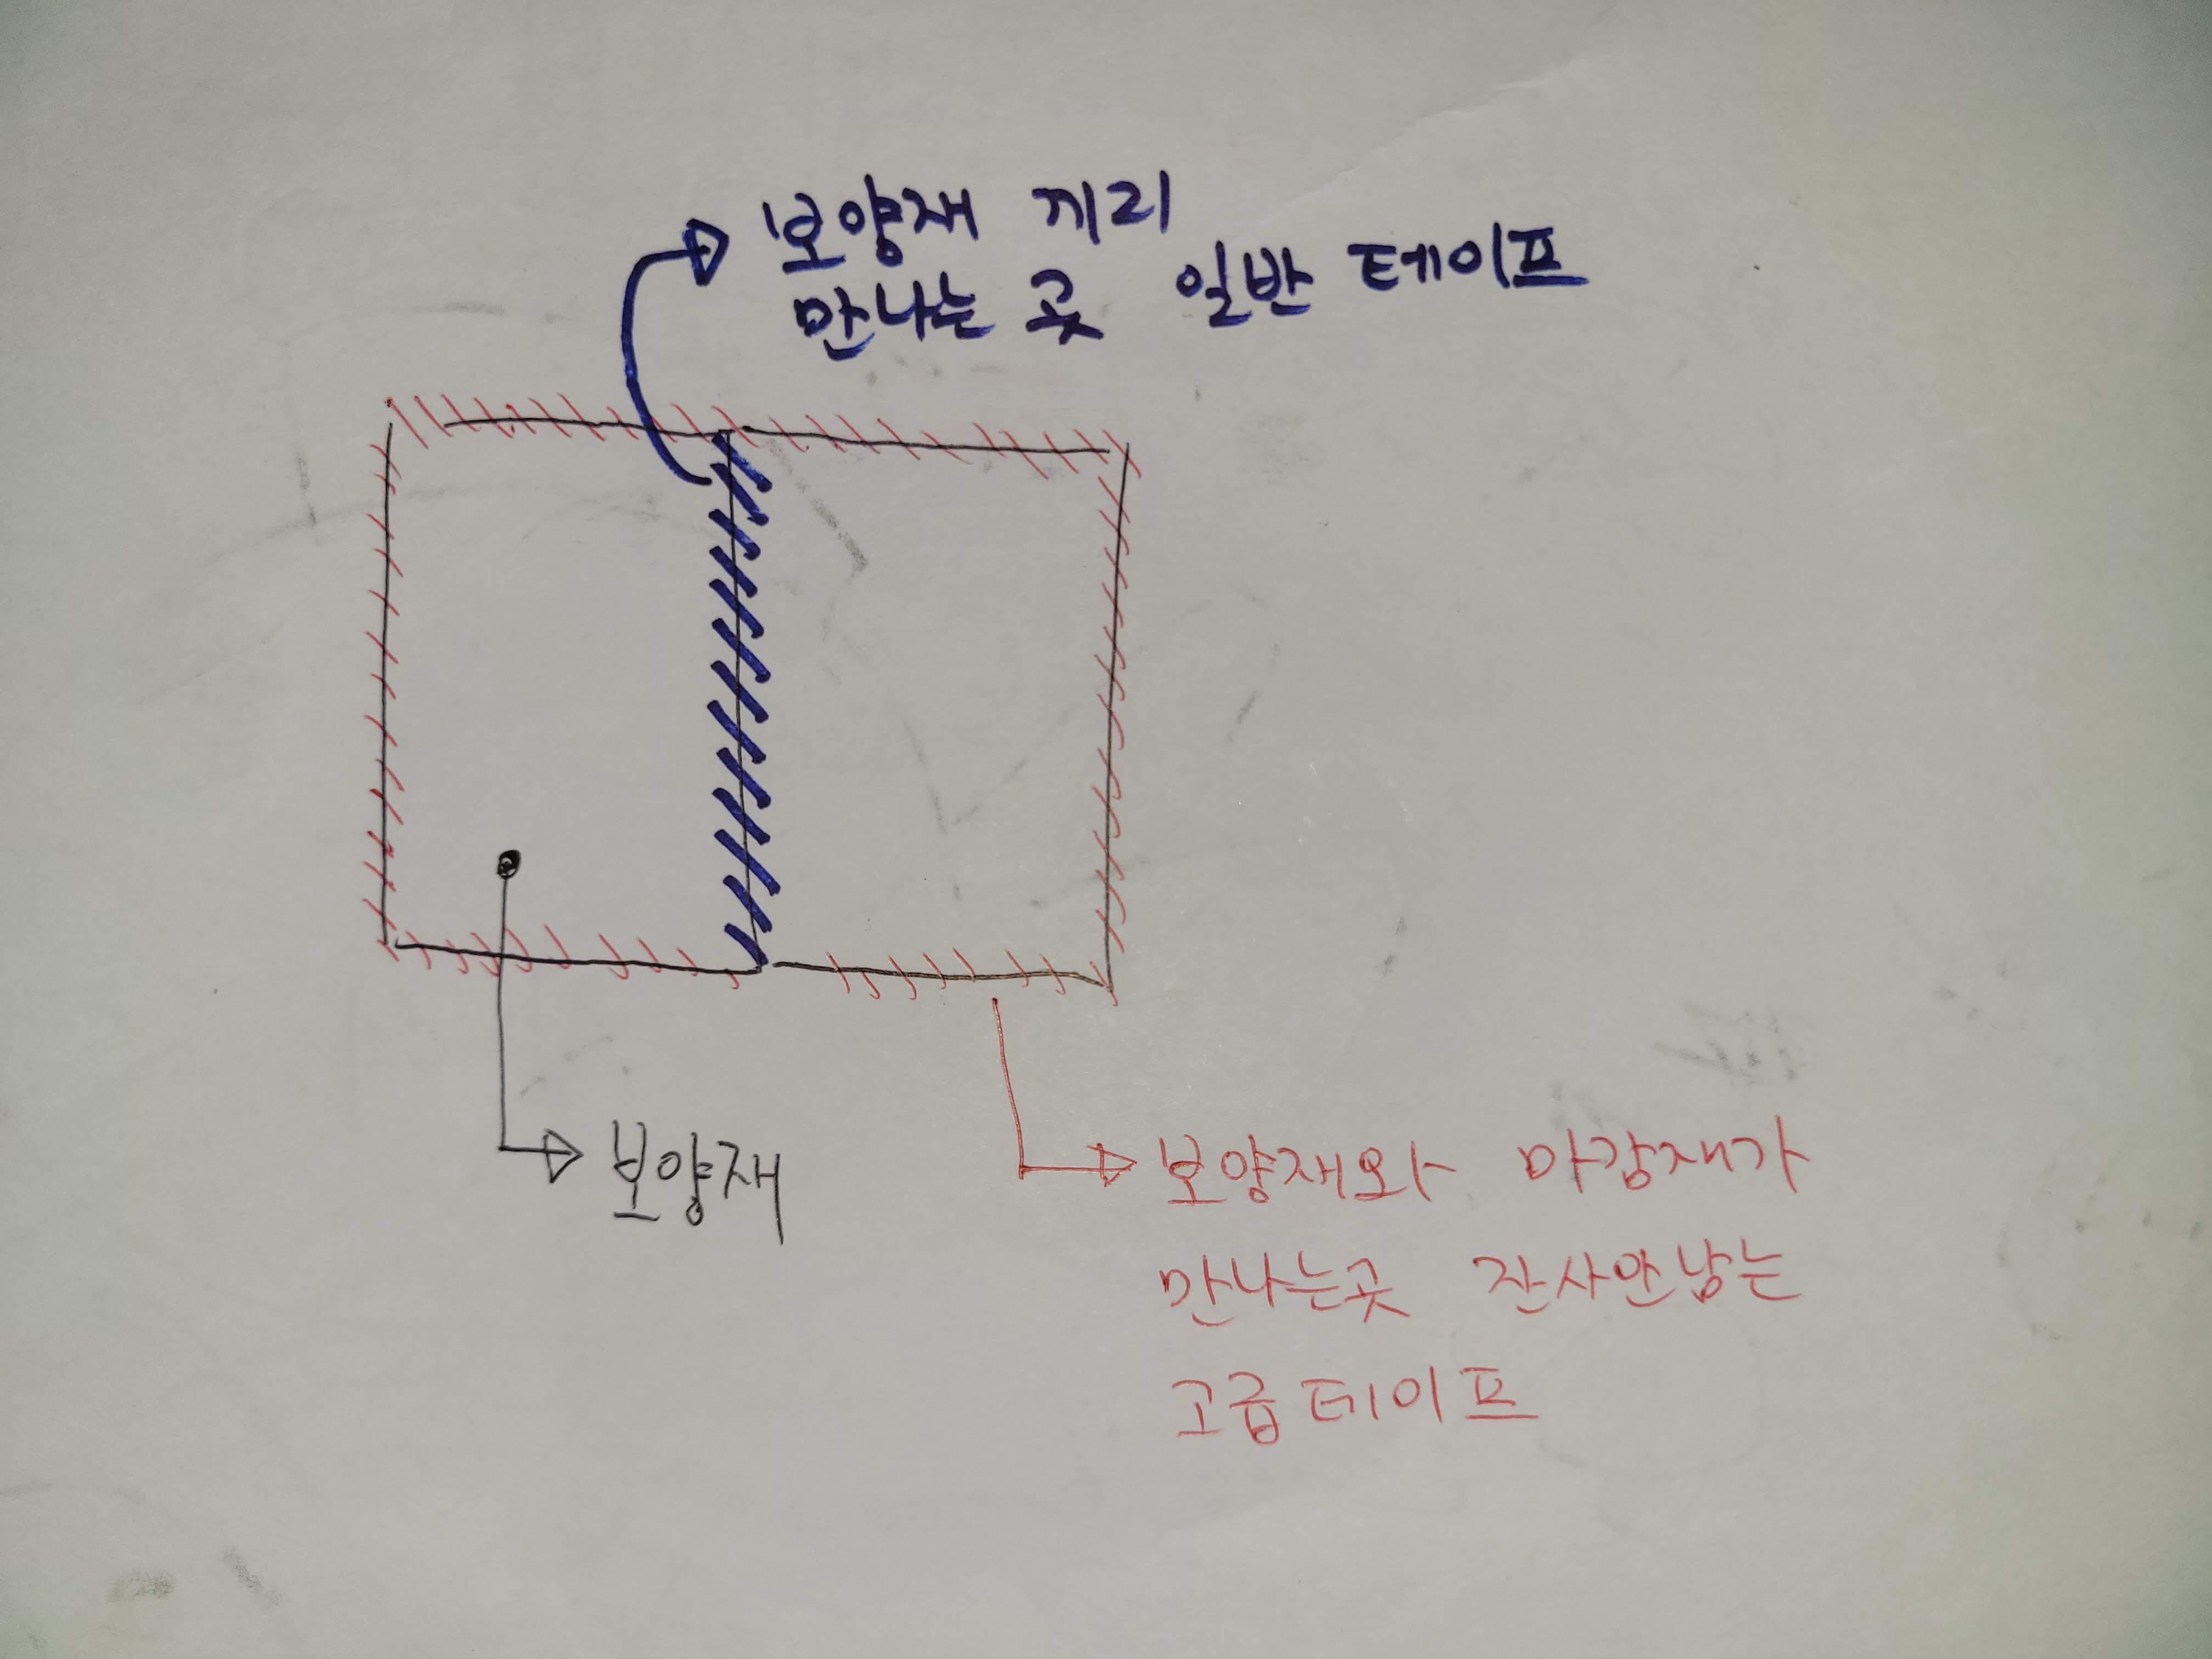 보양재 끼리
만나는 곳 일반 테이프
보양재
보양재와 마감재가
만나는곳 잔사안남는
고급테이프